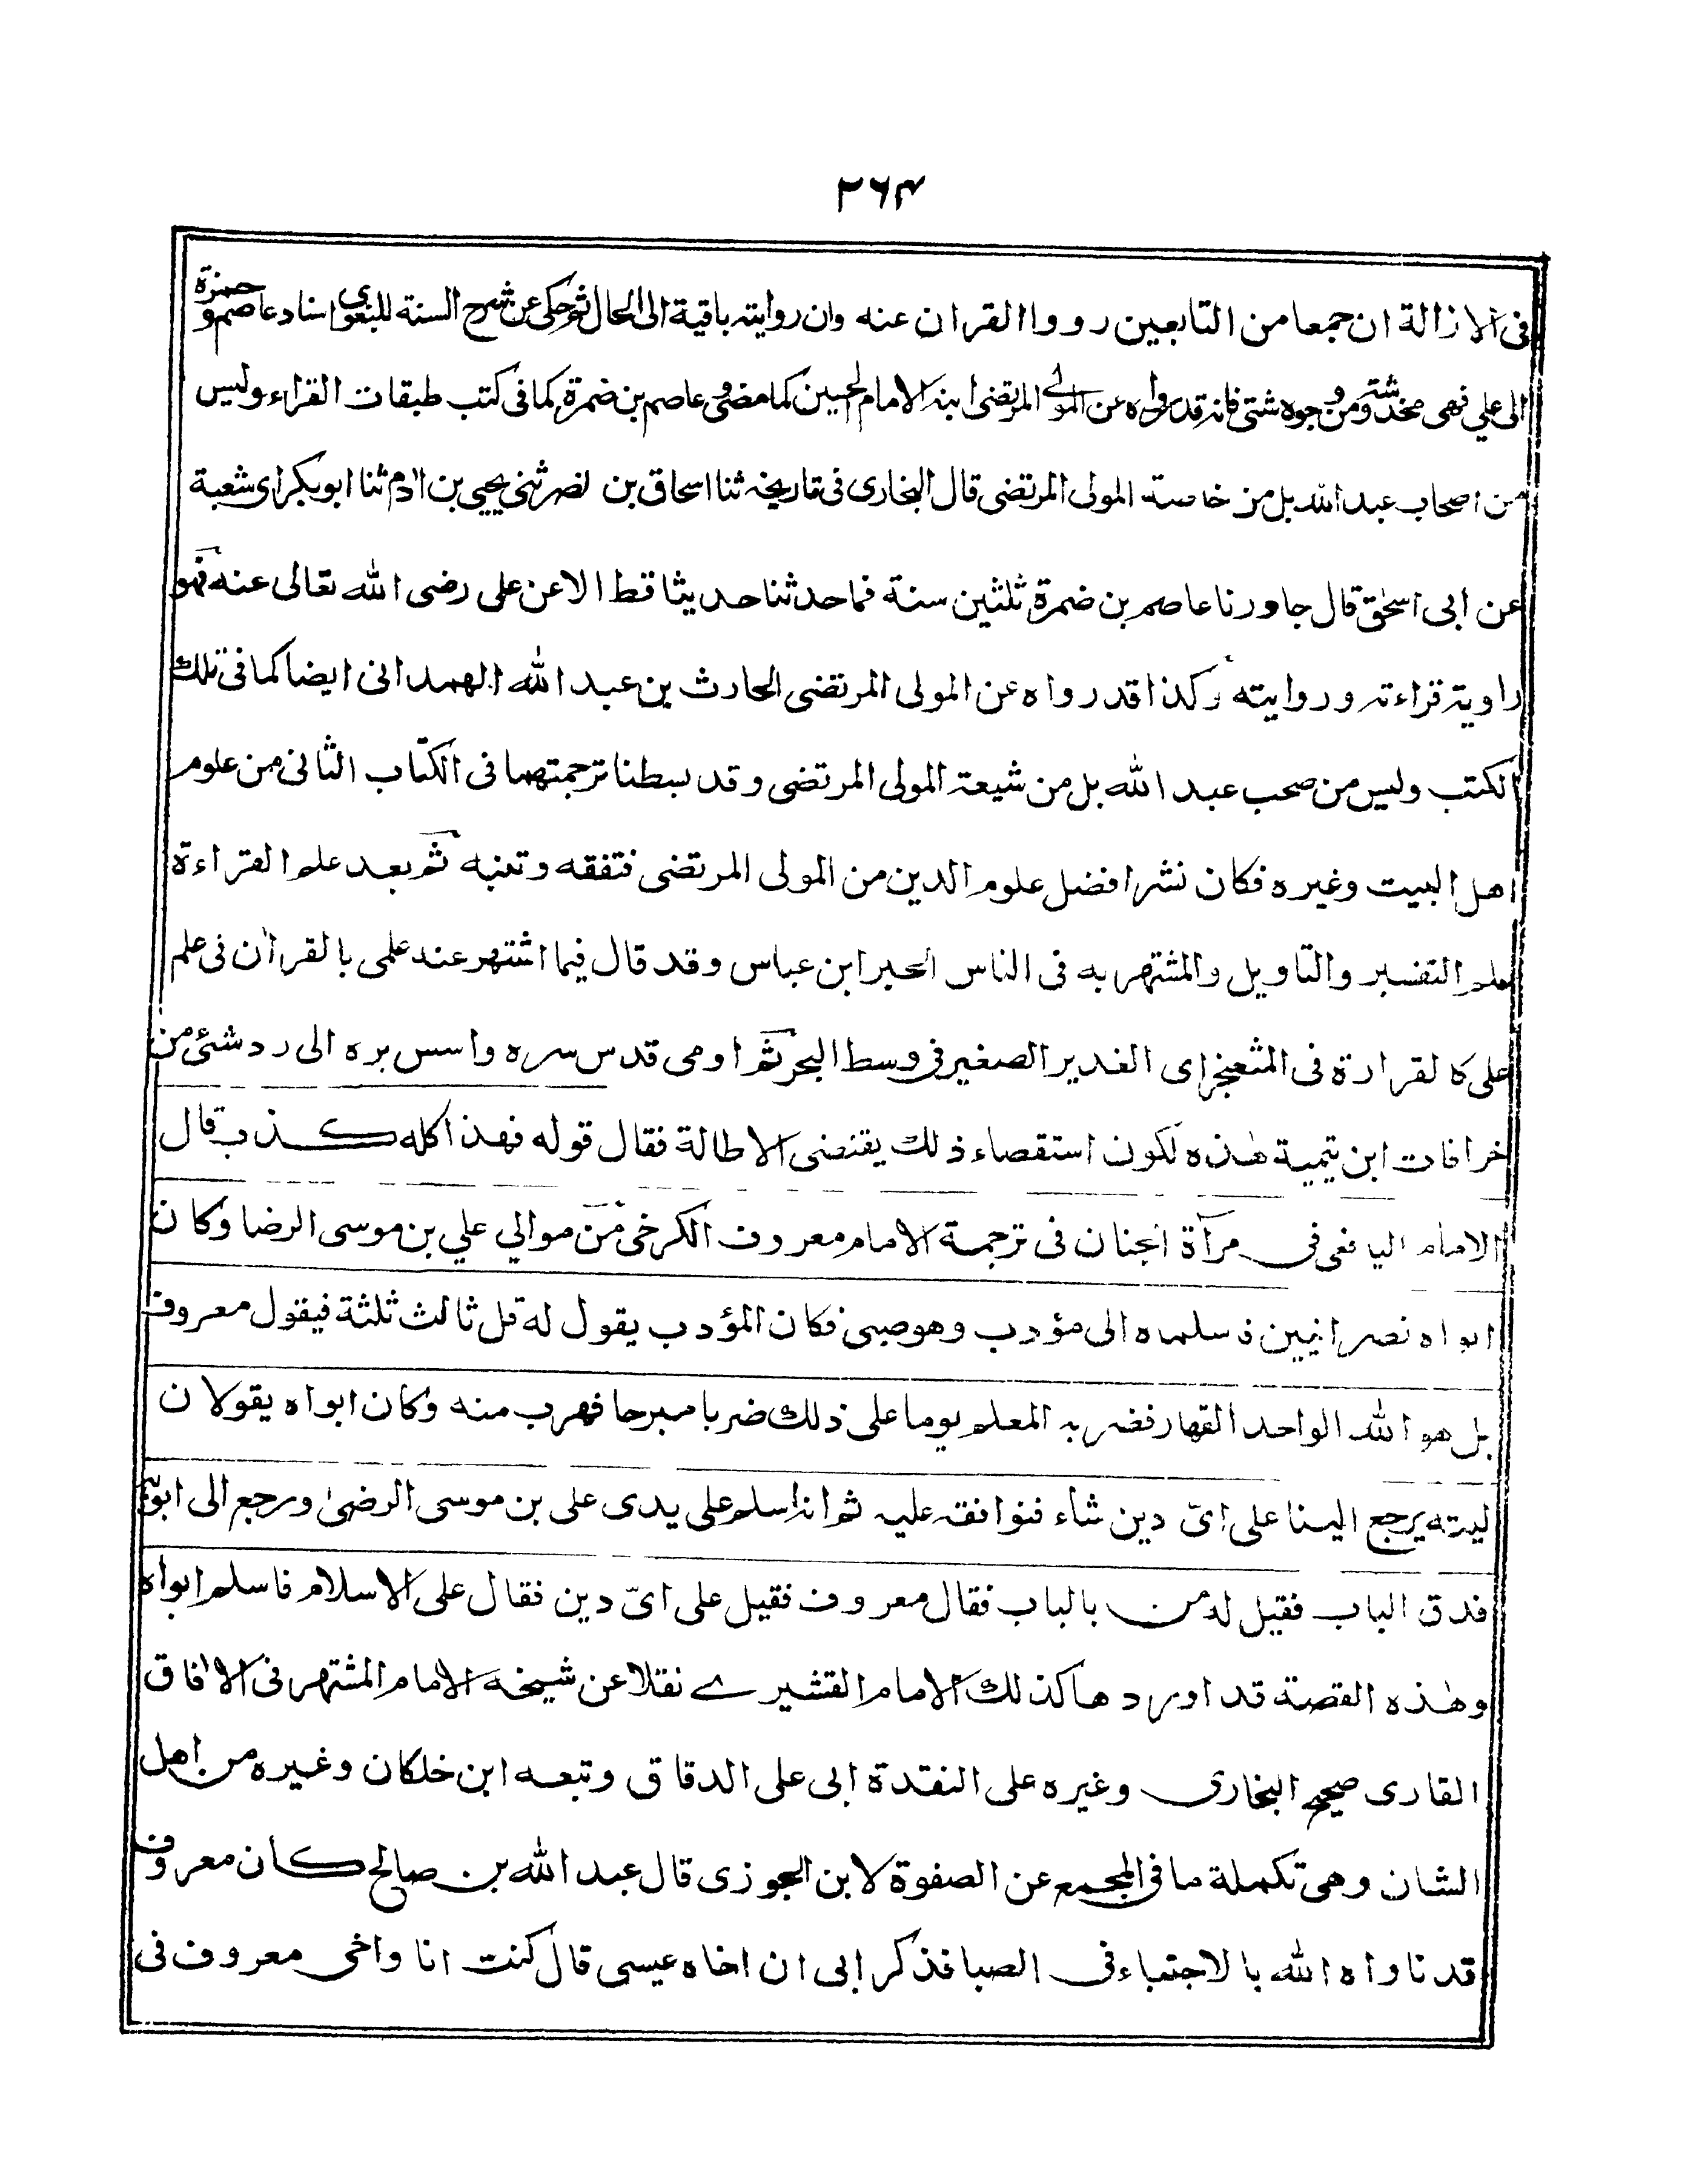 ٢٦٤
فى الازالة ان جمعا من التابعين رووا القران عنه وان روايته باقية الى الحال ثم حكى عن شرح السنة للبغوى اسناد عاصم وحمزة
الى على فهى مخدشة ومن وجوه شتى فانه قد رواه عن المولى المرتضى ابنه الامام الحسين كما مضى وعاصم بن ضمرة كما فى كتب طبقات القراء وليس
من اصحاب عبد الله بل من خاصة المولى المرتضى قال البخارى فى تاريخه ثنا اسحاق بن نصر ثنى يحيى بن ادم ثنا ابو بكر اى شعبة
عن ابى اسحٰق قال جاورنا عاصم بن ضمرة ثلثين سنة فما حدثنا حديثا قط الا عن على رضى الله تعالى عنه فهو
راوية قراءته وروايته وكذا قد رواه عن المولى المرتضى الحارث بن عبد الله الهمدانى ايضا كما فى تلك
الكتب وليس من صحب عبد الله بل من شيعة المولى المرتضى وقد بسطنا ترجمتهما فى الكتاب الثانى من علوم
اهل البيت وغيره فكان نشر افضل علوم الدين من المولى المرتضى فتفقه وتنبه ثم بعد علم القراءة
علم التفسير والتاويل والمشتهر به فى الناس الحبر ابن عباس وقد قال فيما اشتهر عنه علمى بالقران فى علم
على كالقرارة فى المثعنجر اى الغدير الصغير فى وسط البحر ثم اومى قدس سره واسس بره الى رد شئ من
خرافات ابن تيمية هٰذه لكون استقصاء ذلك يقتضى الاطالة فقال قوله فهذا كله كذب قال
الامام اليافعى فى مرآة الجنان فى ترجمة الامام معروف الكرخى من موالي علي بن موسى الرضا وكان
ابواه نصرانيين فسلماه الى مؤدب وهو صبى فكان المؤدب يقول له قل ثالث ثلثة فيقول معروف
بل هو الله الواحد القهار فضربه المعلم يوما على ذلك ضربا مبرحا فهرب منه وكان ابواه يقولان
ليته يرجع الينا على اىّ دين شاء فنوافقه عليه ثم انه اسلم على يدى على بن موسى الرضىٰ ورجع الى ابويه
فدق الباب فقيل له من بالباب فقال معروف فقيل على اىّ دين فقال على الاسلام فاسلم ابواه
وهٰذه القصة قد اوردها كذلك الامام القشيرے نقلا عن شيخه الامام المشتهر فى الاٰفاق
القارى صحيح البخارى وغيره على النقدة ابى على الدقاق وتبعه ابن خلكان وغيره من اهل
الشان وهى تكملة ما فى المجمع عن الصفوة لابن الجوزى قال عبد الله بن صالح كان معروف
قد ناواه الله بالاجتباء فى الصبا فذكر ابى ان اخاه عيسى قال كنت انا واخى معروف فى